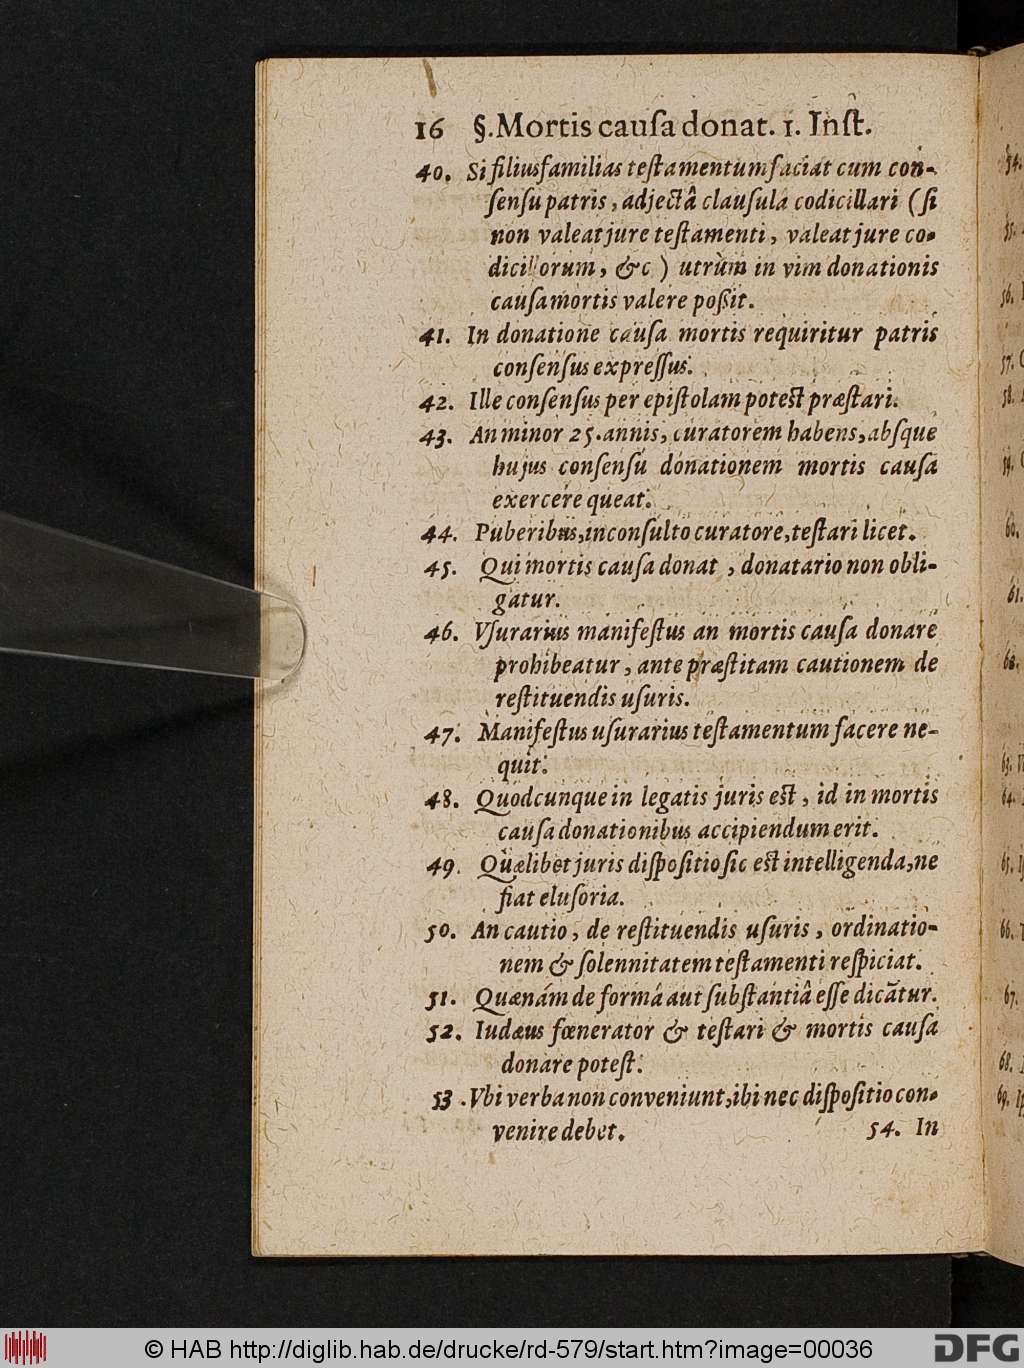 16 §. Mortis cauſa donat. 1. Inſt.
40. Si filiusfamilias teſtamentum faciat cum con-
ſenſu patris, adjectâ clauſulâ codicillari (ſi
non valeat jure teſtamenti, valeat jure co-
dicillorum, &c) utrùm in vim donationis
cauſa mortis valere poßit.
41. In donatione cauſa mortis requiritur patris
conſenſus expreſſus.
42. Ille conſenſus per epiſtolam poteſt præſtari.
43. An minor 25. annis, curatorem habens, abſque
hujus conſenſu donationem mortis cauſa
exercere queat.
44. Puberibus, inconſulto curatore, teſtari licet.
45. Qui mortis cauſa donat, donatario non obli-
gatur.
46. Vſurarius manifeſtus an mortis cauſa donare
prohibeatur, ante præſtitam cautionem de
reſtituendis uſuris.
47. Manifeſtus uſurarius teſtamentum facere ne-
quit.
48. Quodcunque in legatis juris eſt, id in mortis
cauſa donationibus accipiendum erit.
49. Quælibet juris diſpoſitio ſic eſt intelligenda, ne
fiat eluſoria.
50. An cautio, de reſtituendis uſuris, ordinatio-
nem & ſolennitatem teſtamenti reſpiciat.
51. Quænám de formâ aut ſubſtantiâ eſſe dicãtur.
52. Iudæus fœnerator & teſtari & mortis cauſa
donare poteſt.
53. Vbi verba non conveniunt, ibi nec diſpoſitio con-
venire debet. 54. In
54.
55.
56.
57.
58.
59.
60.
61.
62.
63.
64.
65.
66.
67.
68.
69.
© HAB http://diglib.hab.de/drucke/rd-579/start.htm?image=00036
DFG